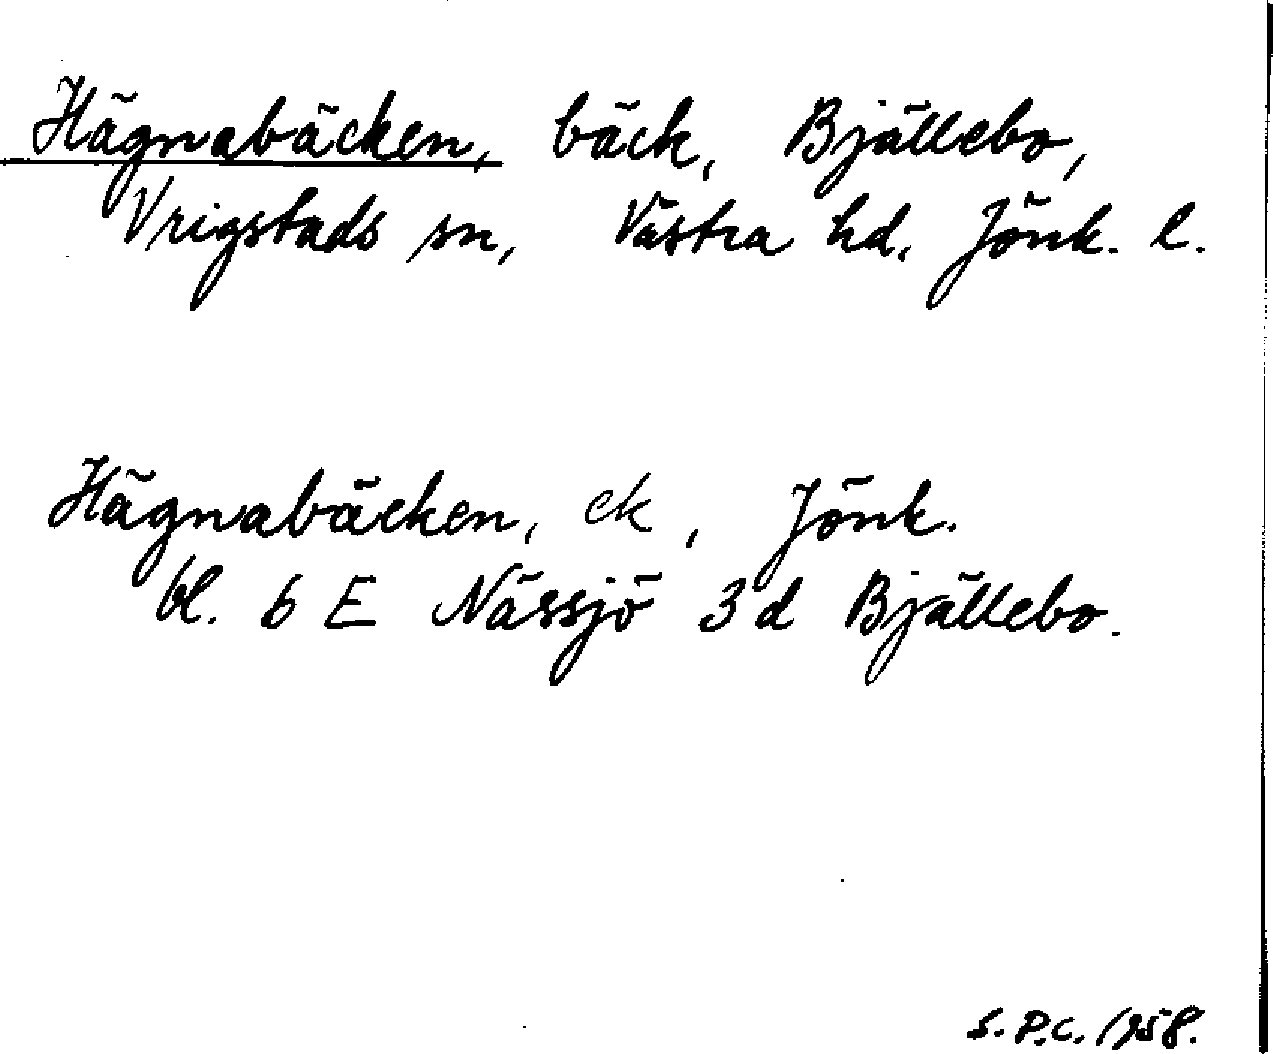 Hägnabäcken, bäck, Bjällebo,
Vrigstads sn, Västra hd. Jönk. l.
Hägnabäcken, ek, Jönk.
bl. 6 E Nässjö 3d Bjällebo.
S.P.C. 1958.